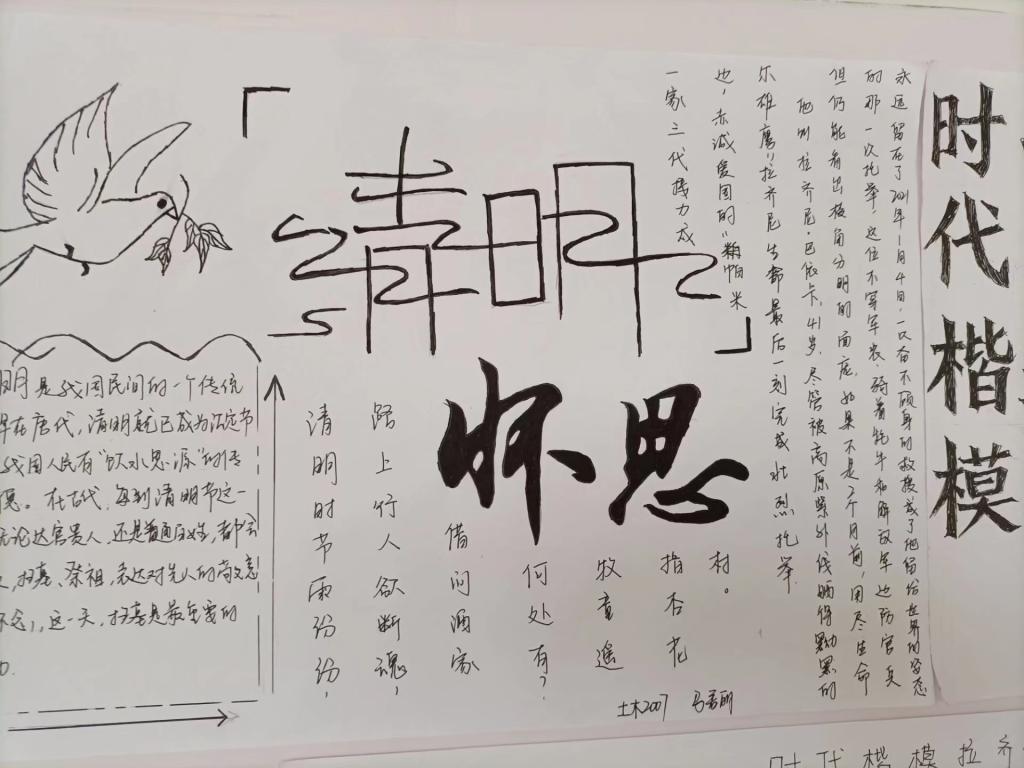 清明
怀思
明是我国民间的一个传统
在唐代，清明就已成为法定节
我国人民有"饮水思源"的传
在古代，每到清明节这一
无论达官贵人，还是普通百姓，都会
扫墓、祭祖，表达对先人的尚敬意
这一天，扫墓是最重要的
清明时节雨纷纷，
路上行人欲断魂，
借问酒家
何处有？
牧童遥
指杏花
村。
土木2007
时代楷模
永远留在了2021年1月4日，一次奋不顾身的救援成了他留给世界的姿态
的那一次托举！这位不穿军装、骑着牦牛和解放军边防官兵
但仍能看出棱角分明的面庞，如果不是2个月前，用尽生命
他叫拉齐尼·巴依卡，41岁，尽管被高原紫外线晒得黝黑的
尔雄鹰！拉齐尼生命最后一刻完成壮烈托举
也，赤诚爱国的"帕米
一家三代接力戍
时代楷模拉齐